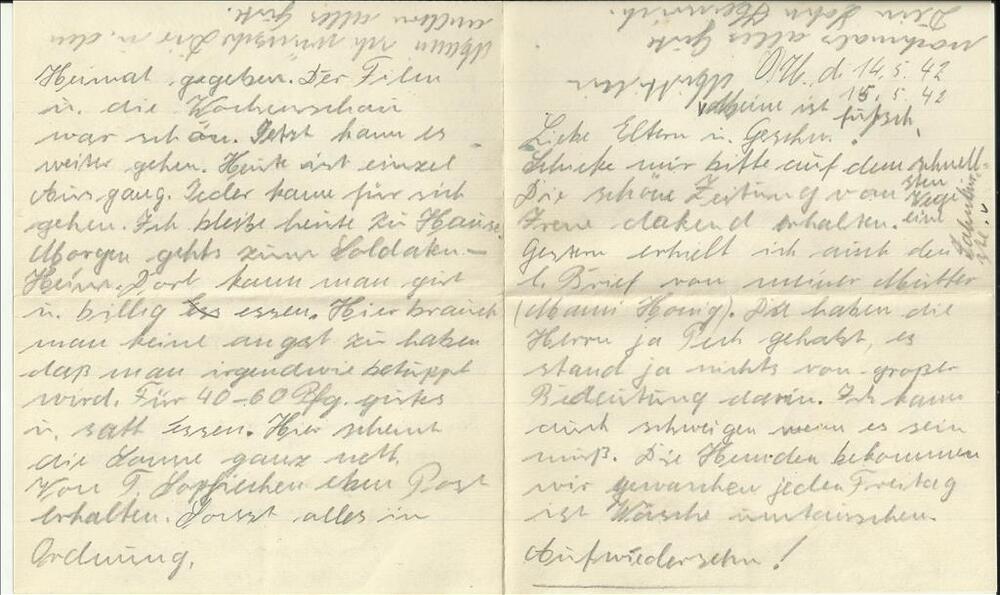 ich wünsche Dir u. den
andern alles Gute.
Heimat gegeben. Der Film
u. die Wochenschau
war schön. Jetzt kann es
weiter gehen. Heute ist einzel
Ausgang. Jeder kann für sich
gehen. Ich bleibe heute zu Hause.
Morgen gehts zum Soldaten-
Heim. Dort kann man gut
u. billig essen. Hier brauch
man keine angst zu haben
daß man irgendwie betuppt
wird. Für 40-60 Pfg. gutes
u. satt Essen. Hier scheint
die Sonne ganz nett.
Von eben Post
erhalten. Sonst alles in
Ordnung.
nochmals alles Gute
Dein Sohn Heinrich.
O.U. d. 14.5.42
15.5.42
ist hübsch.
Liebe Eltern u. Geschw.
Schicke mir bitte auf dem schnell-
sten Wege eine
Die schöne Zeitung von
Irene dakend erhalten.
Gestern erhielt ich auch den
l. Brief von meiner Mutter
(Mami Honig). Da haben die
Herrn ja Pech gehabt, es
stand ja nichts von großer
Bedeutung darin. Ich kann
auch schweigen wenn es sein
muß. Die Hemden bekommen
wir gewaschen jeden Freitag
ist Wäsche umtauschen.
Aufwiedersehn!